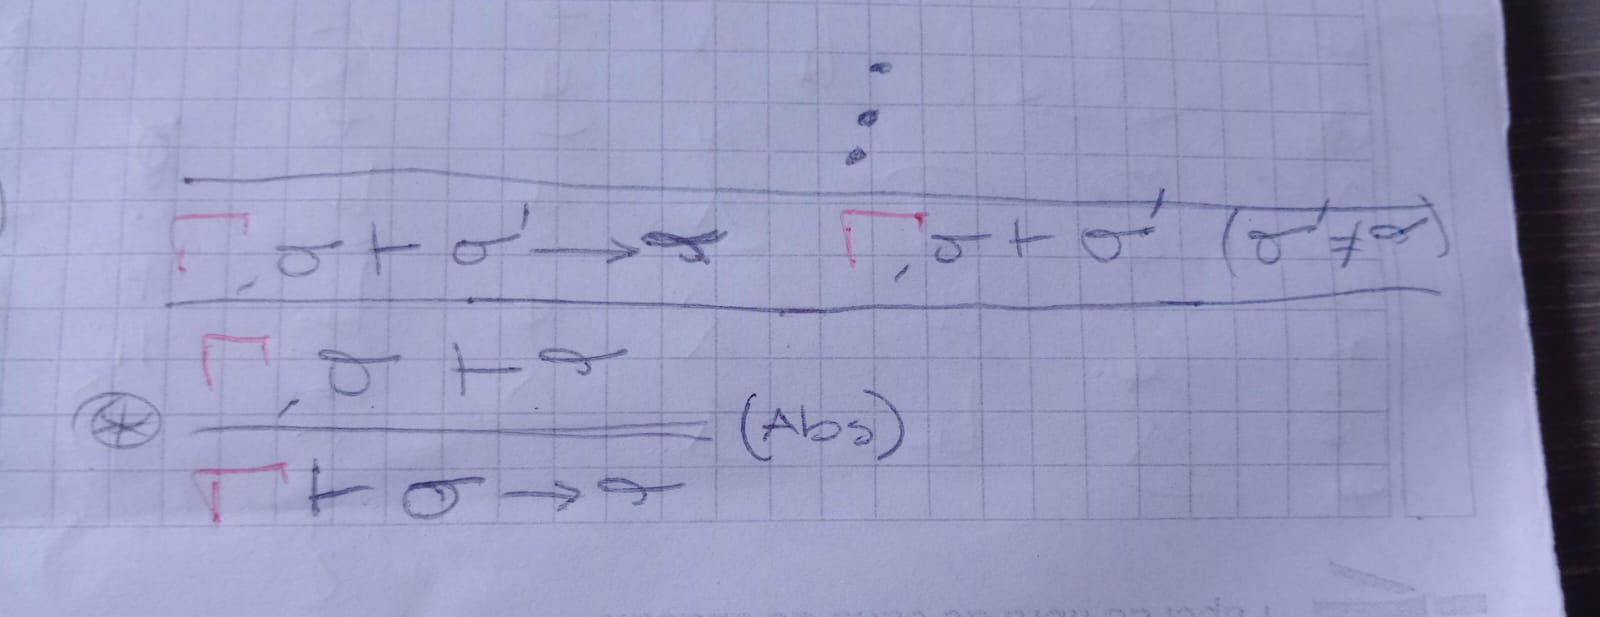 Γ, σ ⊢ σ' → τ    Γ, σ ⊢ σ' (σ' ≠ τ)
Γ, σ ⊢ τ
(Abs)
Γ ⊢ σ → τ